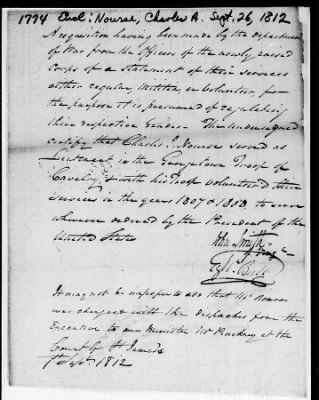 1774 Encl: Nourse, Charles A. Sept. 26, 1812
A requisition having been made by the department
of War from the Officers of the newly raised
corps of a statement of their services
either regular, Militia or Volunteer for
the purpose it is presumed of regulating
their respective grades. The Undersigned
certify that Charles J. Nourse served as
Lieutenant in the Georgetown Troop of
Cavalry & with his Troop volunteered their
services in the years 1807 & 1808 to serve
wherever ordered by the President of the
United States
John
It may not be improper to add that Mr Nourse
was charged with the dispatches from the
Executive to our Minister Mr Pinckney at the
Court of St James's
1st Sept 1812